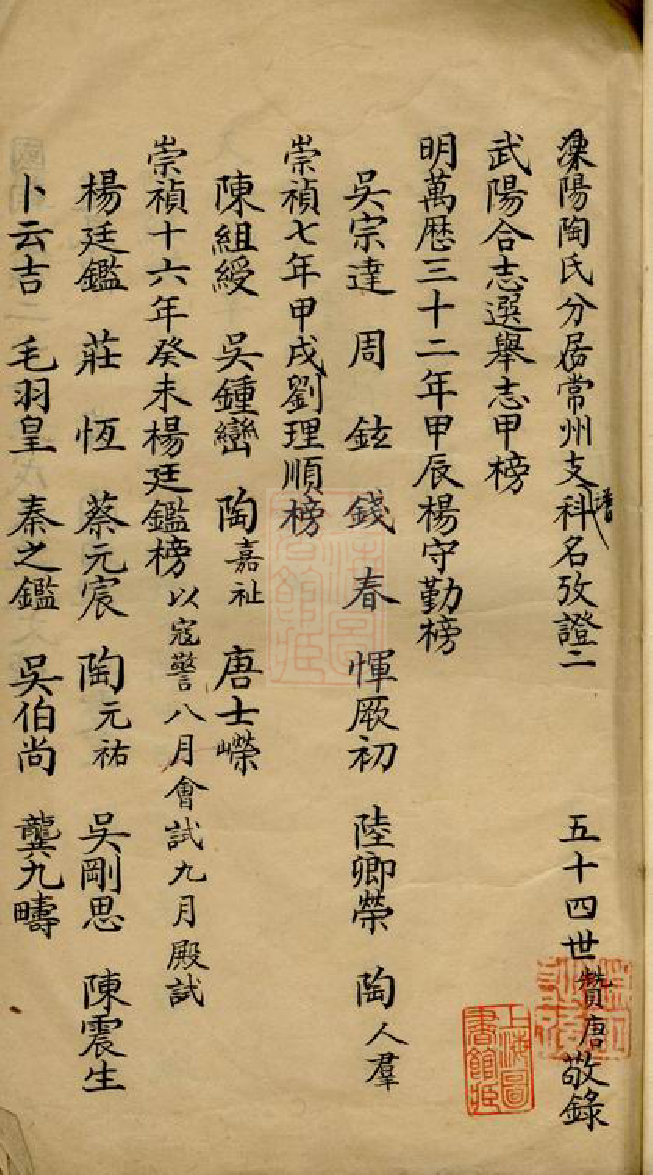 溧陽陶氏分居常州支譜科名攷證二 五十四世贊唐敬錄
武陽合志選舉志甲榜
明萬曆三十二年甲辰楊守勤榜
吳宗達 周鉉 錢春 惲厥初 陸卿榮 陶人羣
崇禎七年甲戌劉理順榜
陳組綬 吳鍾巒 陶嘉祉 唐士嶸
崇禎十六年癸未楊廷鑑榜 以寇警八月會試九月殿試
楊廷鑑 莊恆 蔡元宸 陶元祐 吳剛思 陳震生
卜云吉 毛羽皇 秦之鑑 吳伯尚 龔九疇
上海圖書館藏